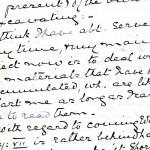 present of the
excavating. -
think I have abt.
my time, & my main
ect now is to deal w
materials that I have
cumulated, wt. are
art me as long as I
to read them.
with regard to coming
VII is rather behindha